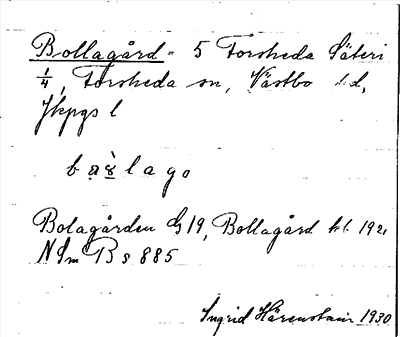 Bollagård - 5 Forsheda Säteri
1/4, Forsheda sn, Västbo hd,
Jkpgs l
Bolagården G19, Bollagård kb 192,
NSm B s 885
Ingrid Härenstam 1930